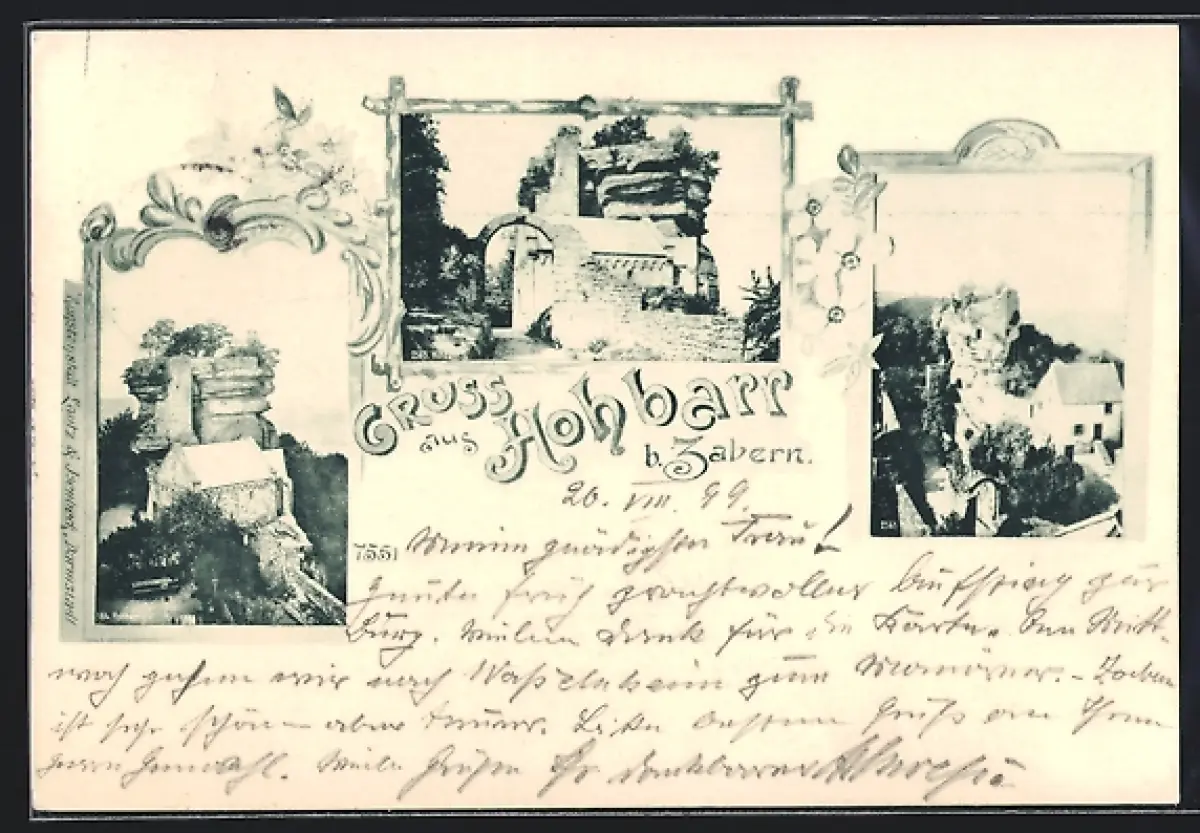 Gruss
aus Hohbarr
b. Zabern.
26. VIII. 99.
7551
Meine gnädigste Frau!
Heute früh prachtvoller Aufstieg zur
Burg. Vielen Dank für die Karte. Am Mitt-
woch gehen wir nach Waßelnheim zum Manöver. - Zabern
ist sehr schön - aber teuer. Bitte besten Gruß an Ihren
Herrn Gemahl. Viele Grüße Ihr dankbarer